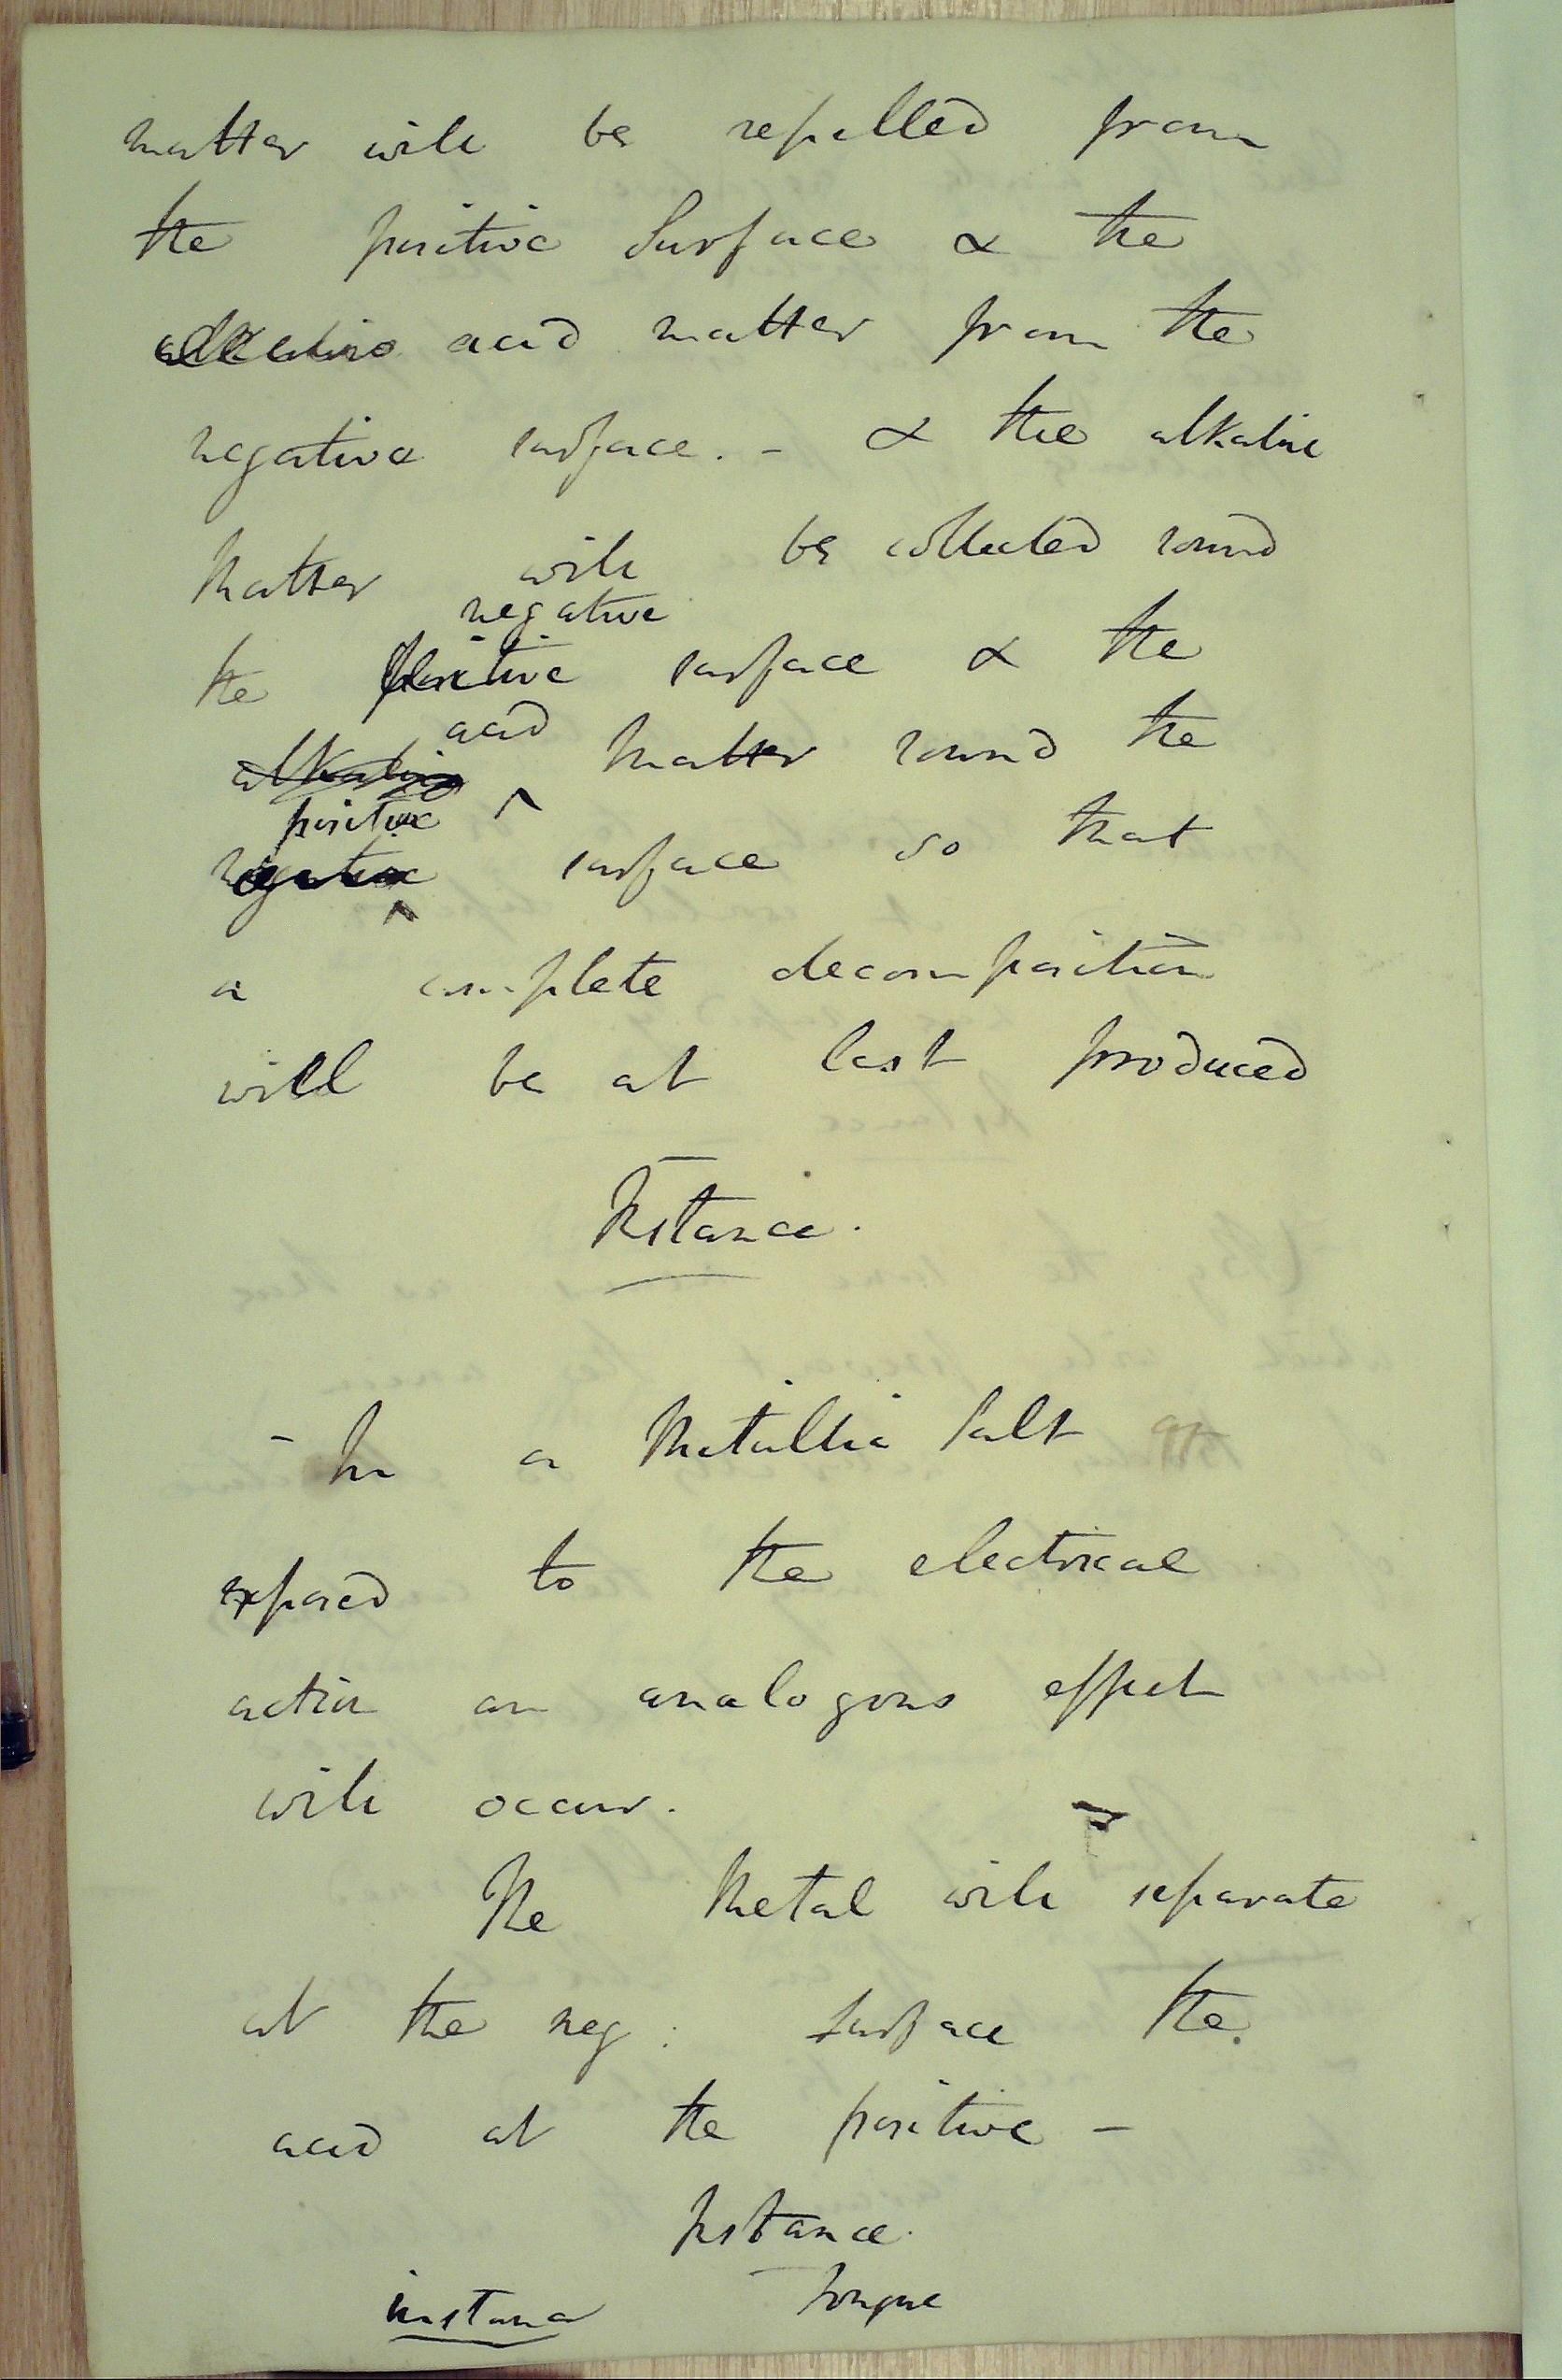 matter will be repelled from
the positive Surface & the
alkaline acid matter from the
negative surface. - & the alkaline
Matter will be collected round
negative
the positive surface & the
acid
alkaline ^ Matter round the
positive
negative ^ surface so that
a complete decomposition
will be at last produced
Instance.
- In a Metallic Salt
exposed to the electrical
action an analogous effect
will occur.
The Metal will separate
at the neg: surface the
acid at the positive -
Instance.
instance tongue